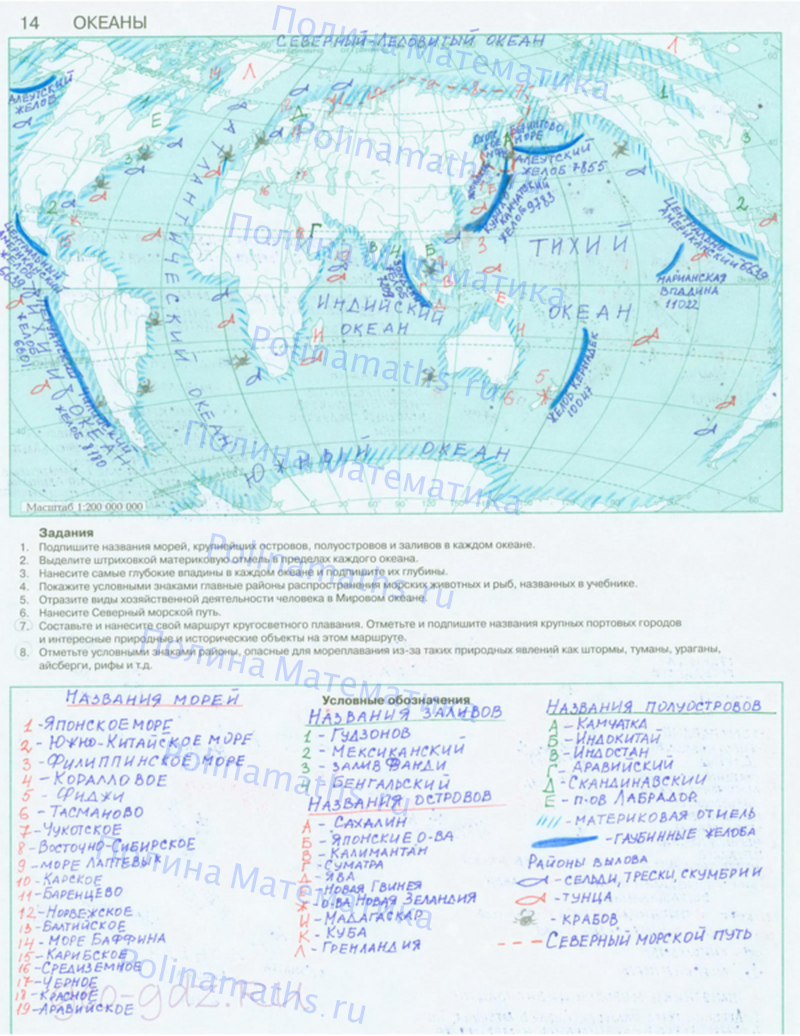 14 ОКЕАНЫ
СЕВЕРНЫЙ-ЛЕДОВИТЫЙ ОКЕАН
АЛЕУТСКИЙ
ЖЕЛОБ
БЕРИНГОВО
МОРЕ
АЛЕУТСКИЙ
ЖЕЛОБ 7855
КАМЧАТСКИЙ
ЖЕЛОБ 9783
ЦЕНТРАЛЬНО
АМЕРИКАНСКИЙ 6639
МАРИАНСКАЯ
ВПАДИНА
11022
ТИХИЙ
ОКЕАН
АТЛАНТИЧЕСКИЙ ОКЕАН
ИНДИЙСКИЙ
ОКЕАН
ЖЕЛОБ КЕРМАДЕК
10047
ЖЕЛОБ 8180
ТИХИЙ ОКЕАН
ЮЖНЫЙ ОКЕАН
Масштаб 1:200 000 000
Задания
1. Подпишите названия морей, крупнейших островов, полуостровов и заливов в каждом океане.
2. Выделите штриховкой материковую отмель в пределах каждого океана.
3. Нанесите самые глубокие впадины в каждом океане и подпишите их глубины.
4. Покажите условными знаками главные районы распространения морских животных и рыб, названных в учебнике.
5. Отразите виды хозяйственной деятельности человека в Мировом океане.
6. Нанесите Северный морской путь.
7. Составьте и нанесите свой маршрут кругосветного плавания. Отметьте и подпишите названия крупных портовых городов
и интересные природные и исторические объекты на этом маршруте.
8. Отметьте условными знаками районы, опасные для мореплавания из-за таких природных явлений как штормы, туманы, ураганы,
айсберги, рифы и т.д.
Условные обозначения
НАЗВАНИЯ МОРЕЙ
1 - ЯПОНСКОЕ МОРЕ
2 - ЮЖНО-КИТАЙСКОЕ МОРЕ
3 - ФИЛИППИНСКОЕ МОРЕ
4 - КОРАЛЛОВОЕ
5 - ФИДЖИ
6 - ТАСМАНОВО
7 - ЧУКОТСКОЕ
8 - ВОСТОЧНО-СИБИРСКОЕ
9 - МОРЕ ЛАПТЕВЫХ
10 - КАРСКОЕ
11 - БАРЕНЦЕВО
12 - НОРВЕЖСКОЕ
13 - БАЛТИЙСКОЕ
14 - МОРЕ БАФФИНА
15 - КАРИБСКОЕ
16 - СРЕДИЗЕМНОЕ
17 - ЧЕРНОЕ
18 - КРАСНОЕ
19 - АРАВИЙСКОЕ
НАЗВАНИЯ ЗАЛИВОВ
1 - ГУДЗОНОВ
2 - МЕКСИКАНСКИЙ
3 - ЗАЛИВ ФАНДИ
4 - БЕНГАЛЬСКИЙ
НАЗВАНИЯ ОСТРОВОВ
А - САХАЛИН
Б - ЯПОНСКИЕ О-ВА
В - КАЛИМАНТАН
Г - СУМАТРА
Д - ЯВА
Е - НОВАЯ ГВИНЕЯ
Ж - О-ВА НОВАЯ ЗЕЛАНДИЯ
И - МАДАГАСКАР
К - КУБА
Л - ГРЕНЛАНДИЯ
НАЗВАНИЯ ПОЛУОСТРОВОВ
А - КАМЧАТКА
Б - ИНДОКИТАЙ
В - ИНДОСТАН
Г - АРАВИЙСКИЙ
Д - СКАНДИНАВСКИЙ
Е - П-ОВ ЛАБРАДОР
- МАТЕРИКОВАЯ ОТМЕЛЬ
- ГЛУБИННЫЕ ЖЕЛОБА
РАЙОНЫ ВЫЛОВА
- СЕЛЬДИ, ТРЕСКИ, СКУМБРИИ
- ТУНЦА
- КРАБОВ
- СЕВЕРНЫЙ МОРСКОЙ ПУТЬ
Полина Математика
Polinamaths.ru